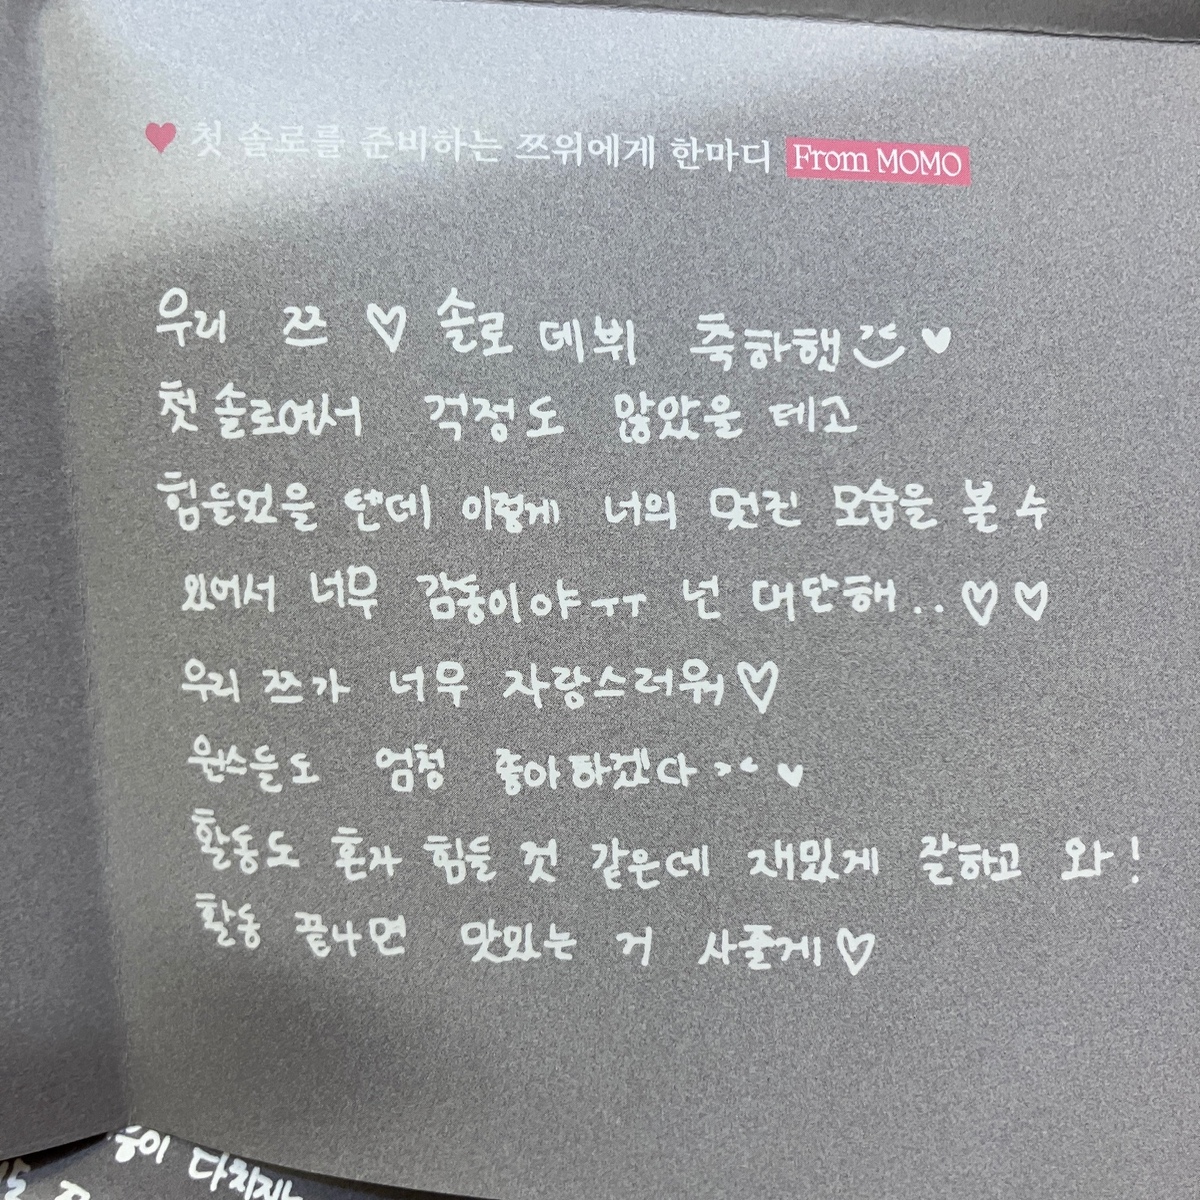 ♥ 첫 솔로를 준비하는 쯔위에게 한마디 From MOMO
우리 쯔 ♡ 솔로 데뷔 축하했 ♥
첫 솔로여서 걱정도 많았을 테고
힘들었을 텐데 이렇게 너의 멋진 모습을 볼 수
있어서 너무 감동이야ㅜㅜ 넌 대단해.. ♡♡
우리 쯔가 너무 자랑스러워♡
원스들도 엄청 좋아하겠다 ><  ♥
활동도 혼자 힘들 것 같은데 재밌게 잘하고 와!
활동 끝나면 맛있는 거 사줄게♡
이 다치지